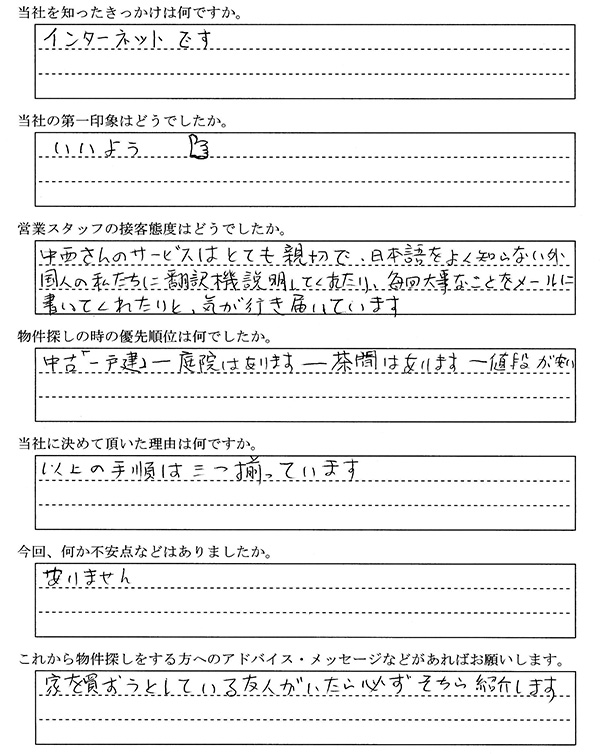 当社を知ったきっかけは何ですか。
インターネットです
当社の第一印象はどうでしたか。
いいよう
営業スタッフの接客態度はどうでしたか。
中西さんのサービスはとても親切で、日本語をよく知らない外
国人の私たちに翻訳機説明してくれたり、毎回大事なことをメールに
書いてくれたりと、気が行き届いています
物件探しの時の優先順位は何でしたか。
中古「一戸建」一庭院はあります一茶間はあります一値段が安い
当社に決めて頂いた理由は何ですか。
以上の手順は三つ揃っています
今回、何か不安点などはありましたか。
ありません
これから物件探しをする方へのアドバイス・メッセージなどがあればお願いします。
家を買おうとしている友人がいたら必ずそちら紹介します